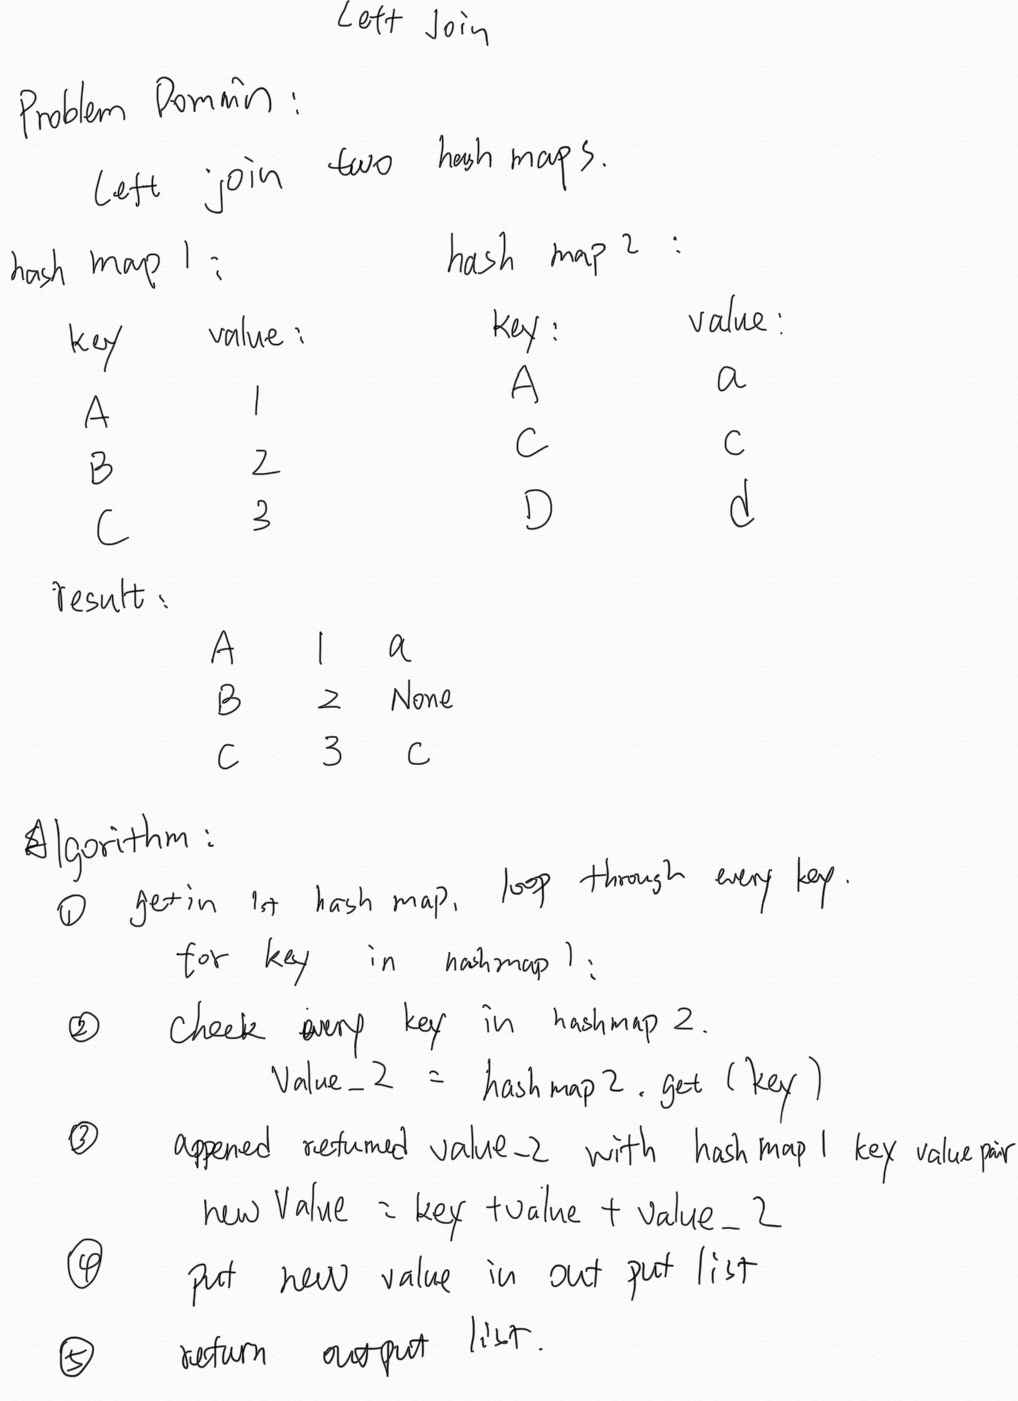 Left Join
Problem Domain:
Left join two hash maps.
hash map 1: hash map 2:
key value: key: value:
A 1 A a
B 2 C c
C 3 D d
result:
A 1 a
B 2 None
C 3 C
Algorithm:
① get in 1st hash map, loop through every key.
for key in hashmap 1:
② Check every key in hashmap 2.
Value_2 = hashmap2.get(key)
③ appened returned value_2 with hash map 1 key value pair
new Value = key + value + value_2
④ put new value in out put list
⑤ return output list.